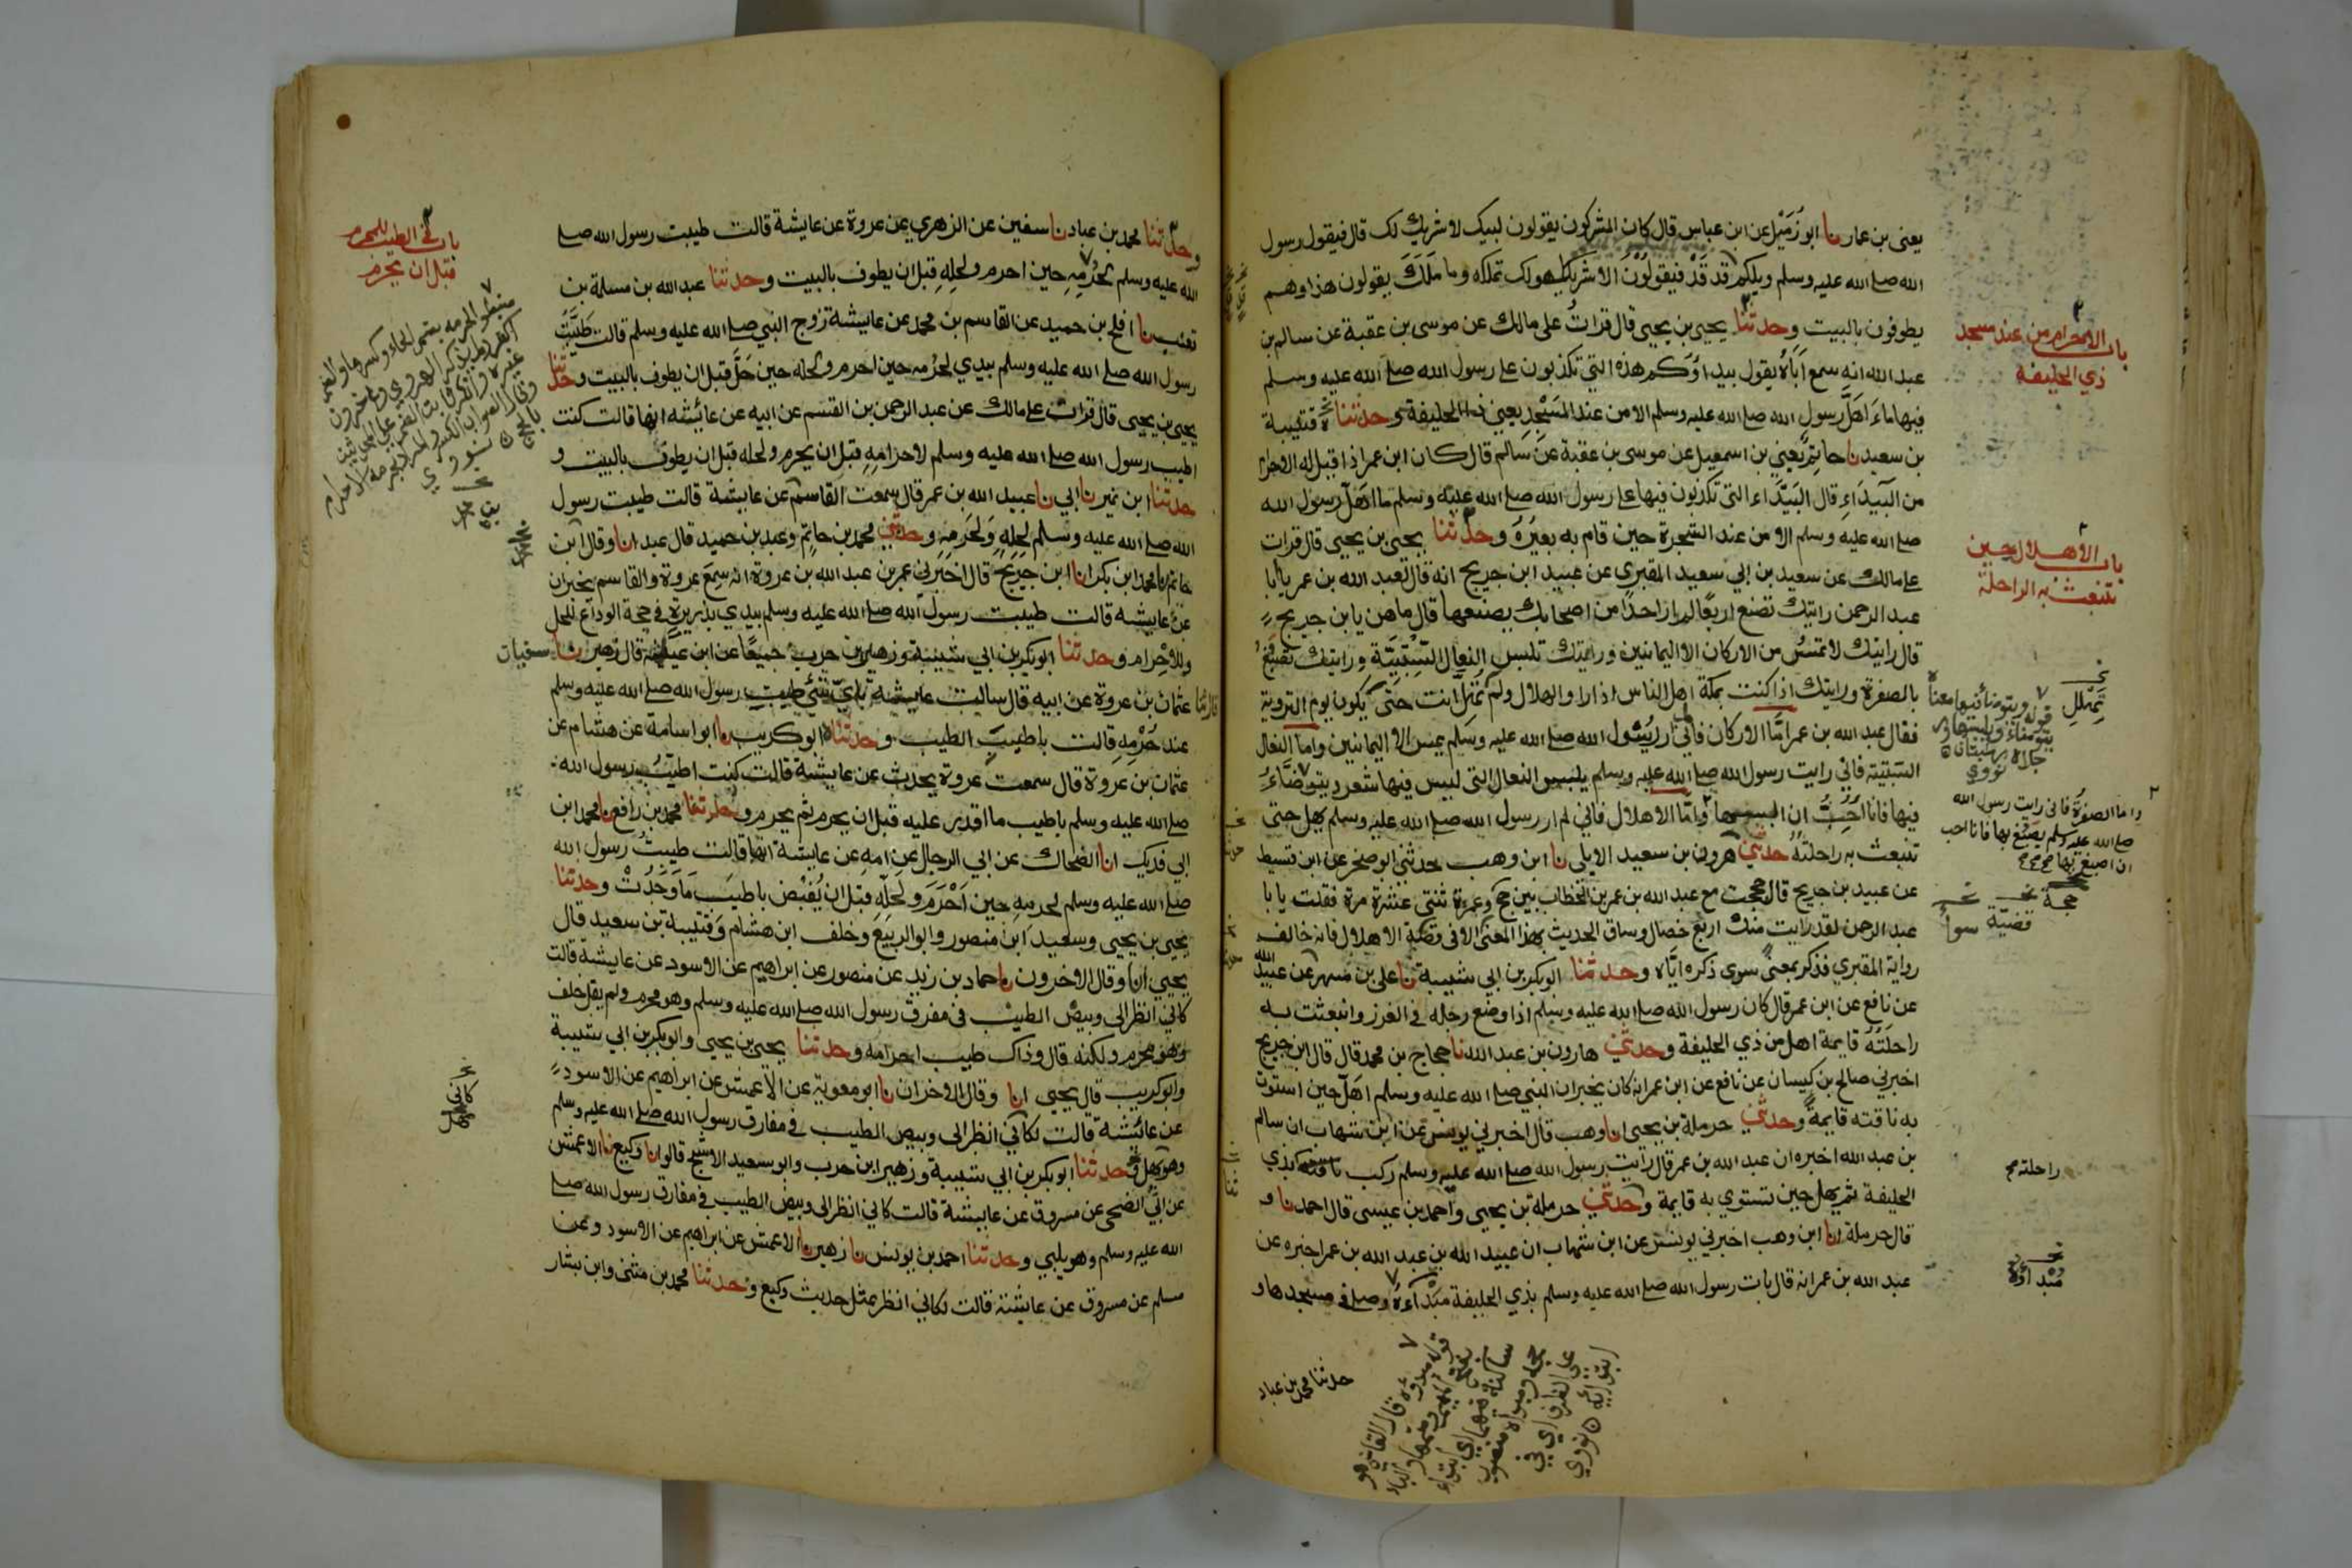 يعنى بن عمار نا ابو زميل عن ابن عباس قال كان المشركون يقولون لبيك لا شريك لك قال فيقول رسول
الله صلے الله عليه وسلم ويلكم قد قد فيقولون الا شريكا هو لك تملكه وما ملك يقولون هذا وهم
يطوفون بالبيت وحدثنا يحيى بن يحيى قال قرات على مالك عن موسى بن عقبة عن سالم بن
عبد الله انه سمع اباه يقول بيداؤكم هذه التي تكذبون على رسول الله صلے الله عليه وسلم
فيها ما اهل رسول الله صلے الله عليه وسلم الا من عند المسجد يعني ذا الحليفة وحدثناه قتيبة
بن سعيد نا حاتم يعني بن اسمعيل عن موسى بن عقبة عن سالم قال كان ابن عمر اذا قيل له الاحرام
من البيداء قال البيداء التي تكذبون فيها على رسول الله صلے الله عليه وسلم ما اهل رسول الله
صلے الله عليه وسلم الا من عند الشجرة حين قام به بعيره وحدثنا يحيى بن يحيى قال قرات
على مالك عن سعيد بن ابي سعيد المقبري عن عبيد ابن جريج انه قال لعبد الله بن عمر يا ابا
عبد الرحمن رايتك تصنع اربعا لم ار احدا من اصحابك يصنعها قال ما هن يا بن جريج
قال رايتك لا تمس من الاركان الا اليمانيين ورايتك تلبس النعال السبتية ورايتك تصبغ
بالصفرة ورايتك اذا كنت بمكة اهل الناس اذا راوا الهلال ولم تهل انت حتى يكون يوم التروية
فقال عبد الله بن عمر اما الاركان فاني لم ار رسول الله صلے الله عليه وسلم يمس الا اليمانيين واما النعال
السبتية فاني رايت رسول الله صلے الله عليه وسلم يلبس النعال التي ليس فيها شعر ويتوضاء
فيها فانا احب ان البسها واما الاهلال فاني لم ار رسول الله صلے الله عليه وسلم يهل حتى
تنبعث به راحلته حدثني هرون بن سعيد الايلي نا ابن وهب حدثني ابو صخر عن ابن قسيط
عن عبيد بن جريج قال حججت مع عبد الله بن عمر بن الخطاب بين حج وعمرة ثنتي عشرة مرة فقلت يا با
عبد الرحمن لقد رايت منك اربع خصال وساق الحديث بهذا المعنى الا في قصة الاهلال فانه خالف
رواية المقبري فذكر بمعنى سوى ذكره اياه وحدثنا ابو بكر بن ابي شيبة نا علي بن مسهر عن عبيد الله
عن نافع عن ابن عمر قال كان رسول الله صلے الله عليه وسلم اذا وضع رجله في الغرز وانبعثت به
راحلته قايمة اهل من ذي الحليفة وحدثني هارون بن عبد الله نا حجاج بن محمد قال قال ابن جريج
اخبرني صالح بن كيسان عن نافع عن ابن عمر انه كان يخبر ان النبي صلے الله عليه وسلم اهل حين استوت
به ناقته قايمة وحدثني حرملة بن يحيى انا وهب قال اخبرني يونس عن ابن شهاب ان سالم
بن عبد الله اخبره ان عبد الله بن عمر قال رايت رسول الله صلے الله عليه وسلم ركب ناقته بذي
الحليفة ثم يهل حين تستوي به قايمة وحدثني حرملة بن يحيى واحمد بن عيسى قال احمد نا و
قال حرملة انا ابن وهب اخبرني يونس عن ابن شهاب ان عبيد الله بن عبد الله بن عمر اخبره عن
عبد الله بن عمر انه قال بات رسول الله صلے الله عليه وسلم بذي الحليفة مبداءه وصلى في مسجدها و
باب الاحرام من عند مسجد
ذي الحليفة
باب الاهلال حين
تنبعث به الراحلة
تهلل
قوله ويتوضأ فيها معناه
يتوضاء ويلبسها و
رجلاه رطبتان
نووي
واما الصفرة فاني رايت رسول الله
صلے الله عليه وسلم يصبغ بها فانا احب
ان اصبغ بها صح
حجة
قضية سوا
راحلته صح
مبداؤه
قوله مبدؤه قال القاضي هو
بفتح الميم وضمها والباء
ساكنة فيهما اي ابتداء
حجه ومبداه منصوب
على الظرف اي في
ابتدائه نووي
حدثنا محمد بن عباد
وحدثنا محمد بن عباد نا سفين عن الزهري عن عروة عن عايشة قالت طيبت رسول الله صلے
الله عليه وسلم لحرمه حين احرم ولحله قبل ان يطوف بالبيت وحدثنا عبد الله بن مسلمة بن
قعنب نا افلح بن حميد عن القاسم بن محمد عن عايشة زوج النبي صلے الله عليه وسلم قالت طيبت
رسول الله صلے الله عليه وسلم بيدي لحرمه حين احرم ولحله حين حل قبل ان يطوف بالبيت وحدثنا
يحيى بن يحيى قال قرات على مالك عن عبد الرحمن بن القسم عن ابيه عن عائشه انها قالت كنت
اطيب رسول الله صلے الله عليه وسلم لاحرامه قبل ان يحرم ولحله قبل ان يطوف بالبيت و
حدثنا ابن نمير نا ابي نا عبيد الله بن عمر قال سمعت القاسم عن عايشة قالت طيبت رسول
الله صلے الله عليه وسلم لحله ولحرمه وحدثني محمد بن حاتم وعبد بن حميد قال عبد انا وقال ابن
حاتم نا محمد ابن بكر انا ابن جريج قال اخبرني عمر بن عبد الله بن عروة انه سمع عروة والقاسم يخبران
عن عايشه قالت طيبت رسول الله صلے الله عليه وسلم بيدي بذريرة في حجة الوداع للحل
وللاحرام وحدثنا ابو بكر بن ابي شيبة وزهير بن حرب جميعا عن ابن عيينة قال زهير نا سفيان
نا عثمان بن عروة عن ابيه قال سالت عايشة باي شئ طيبت رسول الله صلے الله عليه وسلم
عند حرمه قالت باطيب الطيب وحدثناه ابو كريب نا ابو اسامة عن هشام عن
عثمان بن عروة قال سمعت عروة يحدث عن عايشة قالت كنت اطيب رسول الله
صلے الله عليه وسلم باطيب ما اقدر عليه قبل ان يحرم ثم يحرم وحدثنا محمد بن رافع نا محمد ابن
ابي فديك انا الضحاك عن ابي الرجال عن امه عن عايشة انها قالت طيبت رسول الله
صلے الله عليه وسلم لحرمه حين احرم ولحله قبل ان يفيض باطيب ما وجدت وحدثنا
يحيى بن يحيى وسعيد ابن منصور وابو الربيع وخلف ابن هشام وقتيبة بن سعيد قال
يحيى انا وقال الاخرون نا حماد بن زيد عن منصور عن ابراهيم عن الاسود عن عايشة قالت
كاني انظر الى وبيص الطيب في مفرق رسول الله صلے الله عليه وسلم وهو محرم ولم يقل خلف
وهو محرم ولكنه قال وذاك طيب احرامه وحدثنا يحيى بن يحيى وابو بكر بن ابي شيبة
وابو كريب قال يحيى انا وقال الاخران نا ابو معوية عن الاعمش عن ابراهيم عن الاسود
عن عائشة قالت لكاني انظر الى وبيص الطيب في مفارق رسول الله صلے الله عليه وسلم
وهو يهل وحدثنا ابو بكر بن ابي شيبة وزهير ابن حرب وابو سعيد الاشج قالوا نا وكيع نا الاعمش
عن ابي الضحى عن مسروق عن عايشة قالت كاني انظر الى وبيض الطيب في مفارق رسول الله صلے
الله عليه وسلم وهو يلبي وحدثنا احمد بن يونس نا زهير نا الاعمش عن ابراهيم عن الاسود وعن
مسلم عن مسروق عن عايشة قالت لكاني انظر بمثل حديث وكيع وحدثنا محمد بن مثنى وابن بشار
باب في الطيب للمحرم
قبل ان يحرم
كاني